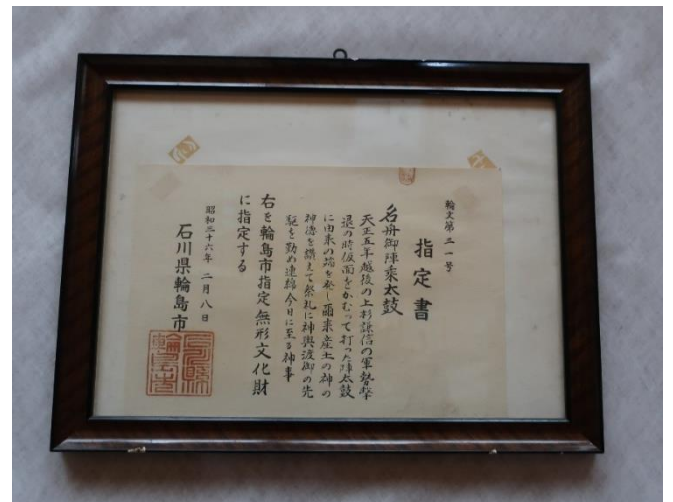 輪文第三一号
指定書
名舟御陣乗太鼓
天正五年越後の上杉謙信の軍勢撃
退の時仮面をかむって打った陣太鼓
に由来の端を発し爾来産土の神の
神徳を讃えて祭礼に神輿渡御の先
駆を勤め連綿今日に至る神事
右を輪島市指定無形文化財
に指定する
昭和三十六年二月八日
石川県輪島市